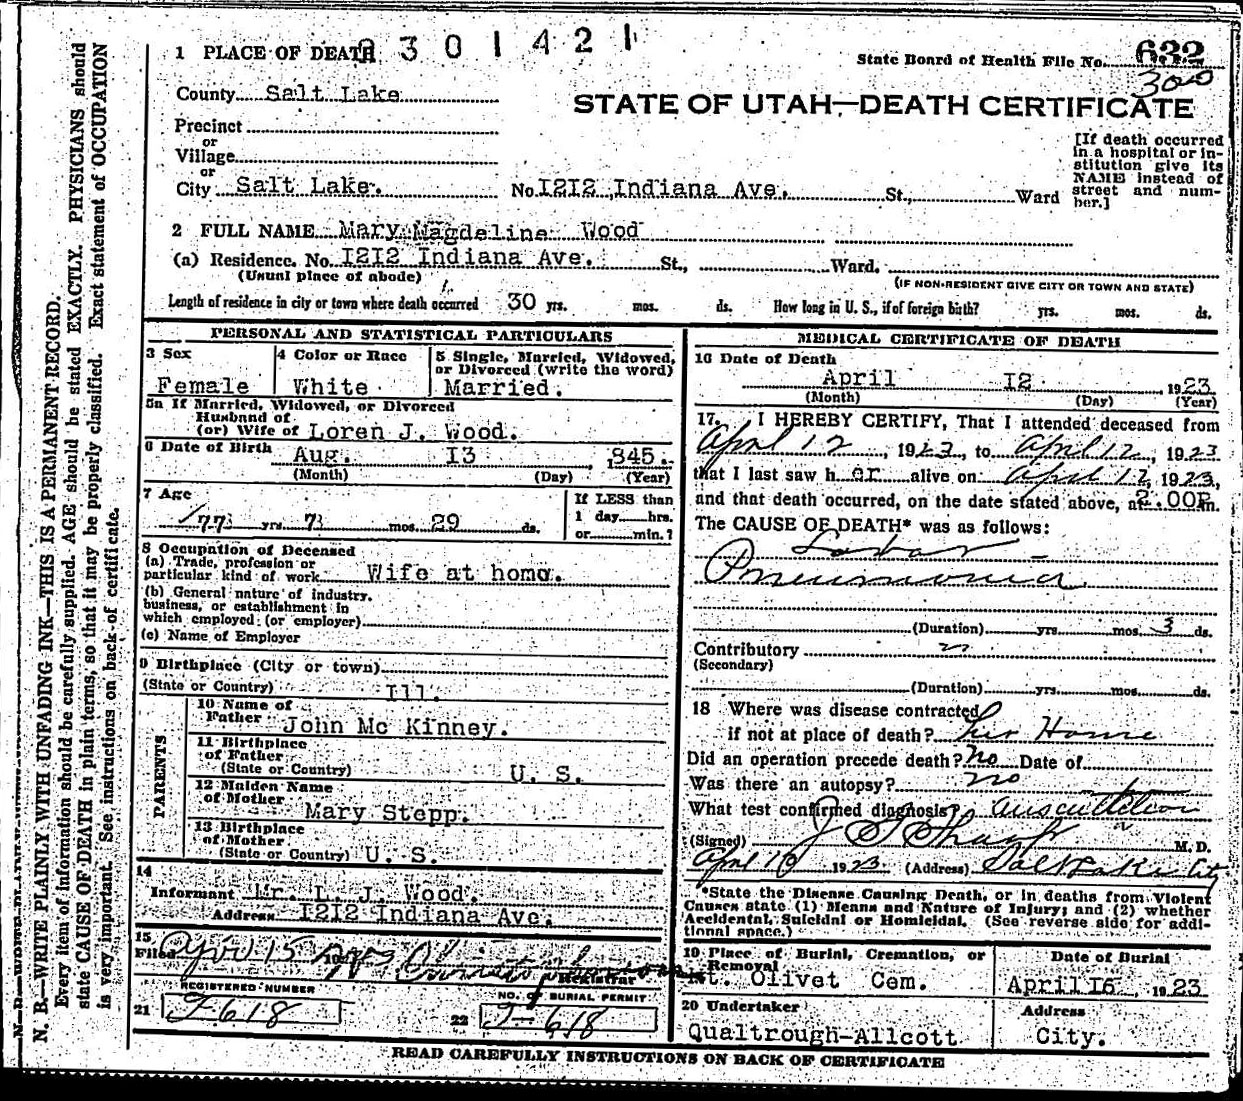 2301421
1 PLACE OF DEATH
State Board of Health File No. 632
300
County Salt Lake
STATE OF UTAH—DEATH CERTIFICATE
Precinct
or
Village
or
City Salt Lake. No. 1212 Indiana Ave. St., Ward
[If death occurred in a hospital or institution give its NAME instead of street and number.]
2 FULL NAME Mary Magdeline Wood
(a) Residence. No. 1212 Indiana Ave. St., Ward.
(Usual place of abode) (IF NON-RESIDENT GIVE CITY OR TOWN AND STATE)
Length of residence in city or town where death occurred 30 yrs. mos. ds. How long in U. S., if of foreign birth? yrs. mos. ds.
PERSONAL AND STATISTICAL PARTICULARS
3 Sex Female
4 Color or Race White
5 Single, Married, Widowed, or Divorced (write the word) Married.
5a If Married, Widowed, or Divorced
Husband of
(or) Wife of Loren J. Wood.
6 Date of Birth Aug. 13, 1845.
(Month) (Day) (Year)
7 Age
77 yrs. 7 mos. 29 ds.
If LESS than
1 day hrs.
or min.?
8 Occupation of Deceased
(a) Trade, profession or
particular kind of work Wife at home.
(b) General nature of industry,
business, or establishment in
which employed (or employer)
(c) Name of Employer
9 Birthplace (City or town)
(State or Country) Ill.
PARENTS
10 Name of
Father John Mc Kinney.
11 Birthplace
of Father
(State or Country) U. S.
12 Maiden Name
of Mother
Mary Stepp.
13 Birthplace
of Mother
(State or Country) U. S.
14
Informant Mr. L. J. Wood.
Address 1212 Indiana Ave.
15
Filed April 15
Registrar
REGISTERED NUMBER
21 F-618
NO. OF BURIAL PERMIT
22 F-618
MEDICAL CERTIFICATE OF DEATH
16 Date of Death
April 12 1923
(Month) (Day) (Year)
17. I HEREBY CERTIFY, That I attended deceased from
April 12, 1923, to April 12, 1923
that I last saw her alive on April 12, 1923,
and that death occurred, on the date stated above, at 2.00P m.
The CAUSE OF DEATH* was as follows:
Lobar
Pneumonia
(Duration) yrs. mos. 3 ds.
Contributory
(Secondary)
(Duration) yrs. mos. ds.
18 Where was disease contracted
if not at place of death? her Home
Did an operation precede death? no Date of
Was there an autopsy? no
What test confirmed diagnosis?
(Signed) J S Sharp M. D.
April 1923 (Address) Salt Lake City
*State the Disease Causing Death, or in deaths from Violent
Causes state (1) Means and Nature of Injury; and (2) whether
Accidental, Suicidal or Homicidal. (See reverse side for addi-
tional space.)
19 Place of Burial, Cremation, or
Removal
Mt. Olivet Cem.
Date of Burial
April 15, 1923
20 Undertaker
Qualtrough-Allcott
Address
City.
READ CAREFULLY INSTRUCTIONS ON BACK OF CERTIFICATE
N. B.—WRITE PLAINLY WITH UNFADING INK—THIS IS A PERMANENT RECORD.
Every item of information should be carefully supplied. AGE should be stated EXACTLY. PHYSICIANS should
state CAUSE OF DEATH in plain terms, so that it may be properly classified. Exact statement of OCCUPATION
is very important. See instructions on back of certificate.